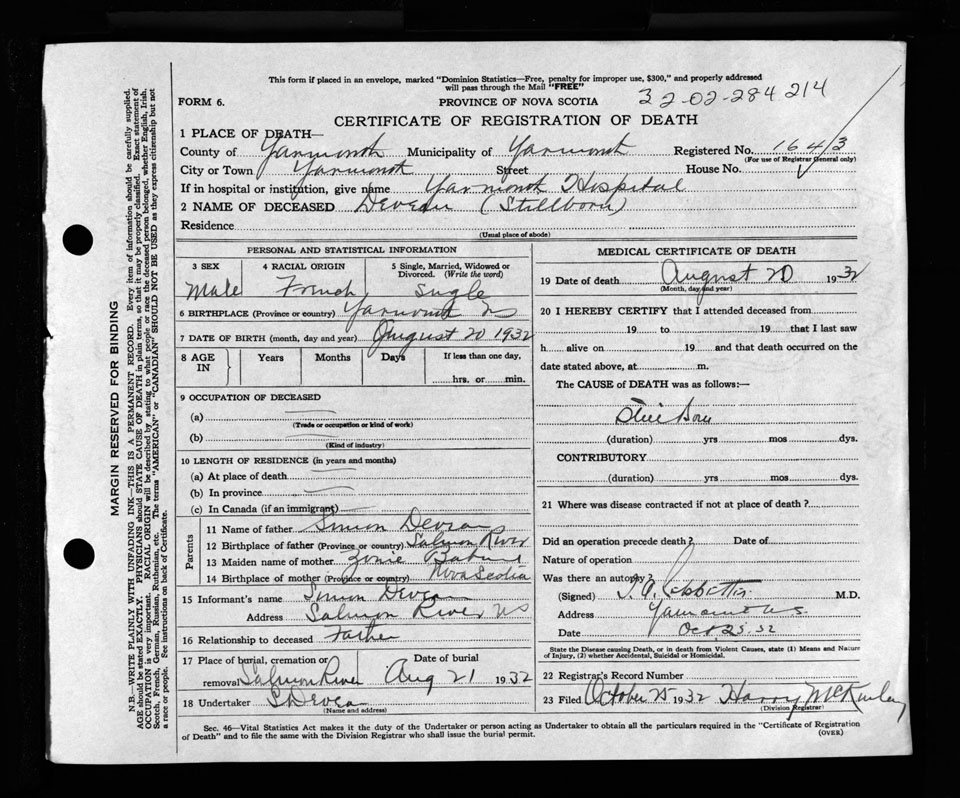 This form if placed in an envelope, marked "Dominion Statistics—Free, penalty for improper use, $300," and properly addressed
will pass through the Mail "FREE"
FORM 6. PROVINCE OF NOVA SCOTIA 32-02-284 214
CERTIFICATE OF REGISTRATION OF DEATH
1 PLACE OF DEATH—
County of Yarmouth Municipality of Yarmouth Registered No. 1643
(For use of Registrar General only)
City or Town Yarmouth Street House No.
If in hospital or institution, give name Yarmouth Hospital
2 NAME OF DECEASED Deveau (Stillborn)
Residence
(Usual place of abode)
PERSONAL AND STATISTICAL INFORMATION
3 SEX 4 RACIAL ORIGIN 5 Single, Married, Widowed or Divorced. (Write the word)
Male French Single
6 BIRTHPLACE (Province or country) Yarmouth NS
7 DATE OF BIRTH (month, day and year) August 20 1932
8 AGE IN Years Months Days If less than one day,
hrs. or min.
9 OCCUPATION OF DECEASED
(a)
(Trade or occupation or kind of work)
(b)
(Kind of industry)
10 LENGTH OF RESIDENCE (in years and months)
(a) At place of death
(b) In province
(c) In Canada (if an immigrant)
Parents
11 Name of father Simon Deveau
12 Birthplace of father (Province or country) Salmon River
13 Maiden name of mother
14 Birthplace of mother (Province or country) Nova Scotia
15 Informant's name Simon Deveau
Address Salmon River NS
16 Relationship to deceased Father
17 Place of burial, cremation or removal Salmon River Date of burial Aug 21 1932
18 Undertaker S Deveau
(Name and address)
MEDICAL CERTIFICATE OF DEATH
19 Date of death August 20 1932
(Month, day and year)
20 I HEREBY CERTIFY that I attended deceased from
19 to 19 that I last saw
h alive on 19 and that death occurred on the
date stated above, at m.
The CAUSE of DEATH was as follows:—
Still Born
(duration) yrs mos dys.
CONTRIBUTORY
(duration) yrs mos dys.
21 Where was disease contracted if not at place of death?
Did an operation precede death? Date of
Nature of operation
Was there an autopsy?
(Signed) M.D.
Address Yarmouth N.S.
Date Oct. 25. 32
State the Disease causing Death, or in death from Violent Causes, state (1) Means and Nature
of Injury, (2) whether Accidental, Suicidal or Homicidal.
22 Registrar's Record Number
23 Filed October 25 1932 Harry McKinley
(Division Registrar)
Sec. 46—Vital Statistics Act makes it the duty of the Undertaker or person acting as Undertaker to obtain all the particulars required in the "Certificate of Registration
of Death" and to file the same with the Division Registrar who shall issue the burial permit. (OVER)
MARGIN RESERVED FOR BINDING
N.B.—WRITE PLAINLY WITH UNFADING INK—THIS IS A PERMANENT RECORD. Every item of information should be carefully supplied.
AGE should be stated EXACTLY. PHYSICIANS should STATE CAUSE OF DEATH in plain terms, so that it may be properly classified. Exact statement of
OCCUPATION is very important. RACIAL ORIGIN will be described by stating to what people or race the deceased person belonged, whether English, Irish,
Scotch, French, German, Russian, Ruthenian, etc. The terms "AMERICAN" or "CANADIAN" SHOULD NOT BE USED as they express citizenship but not
a race or people. See instructions on back of Certificate.